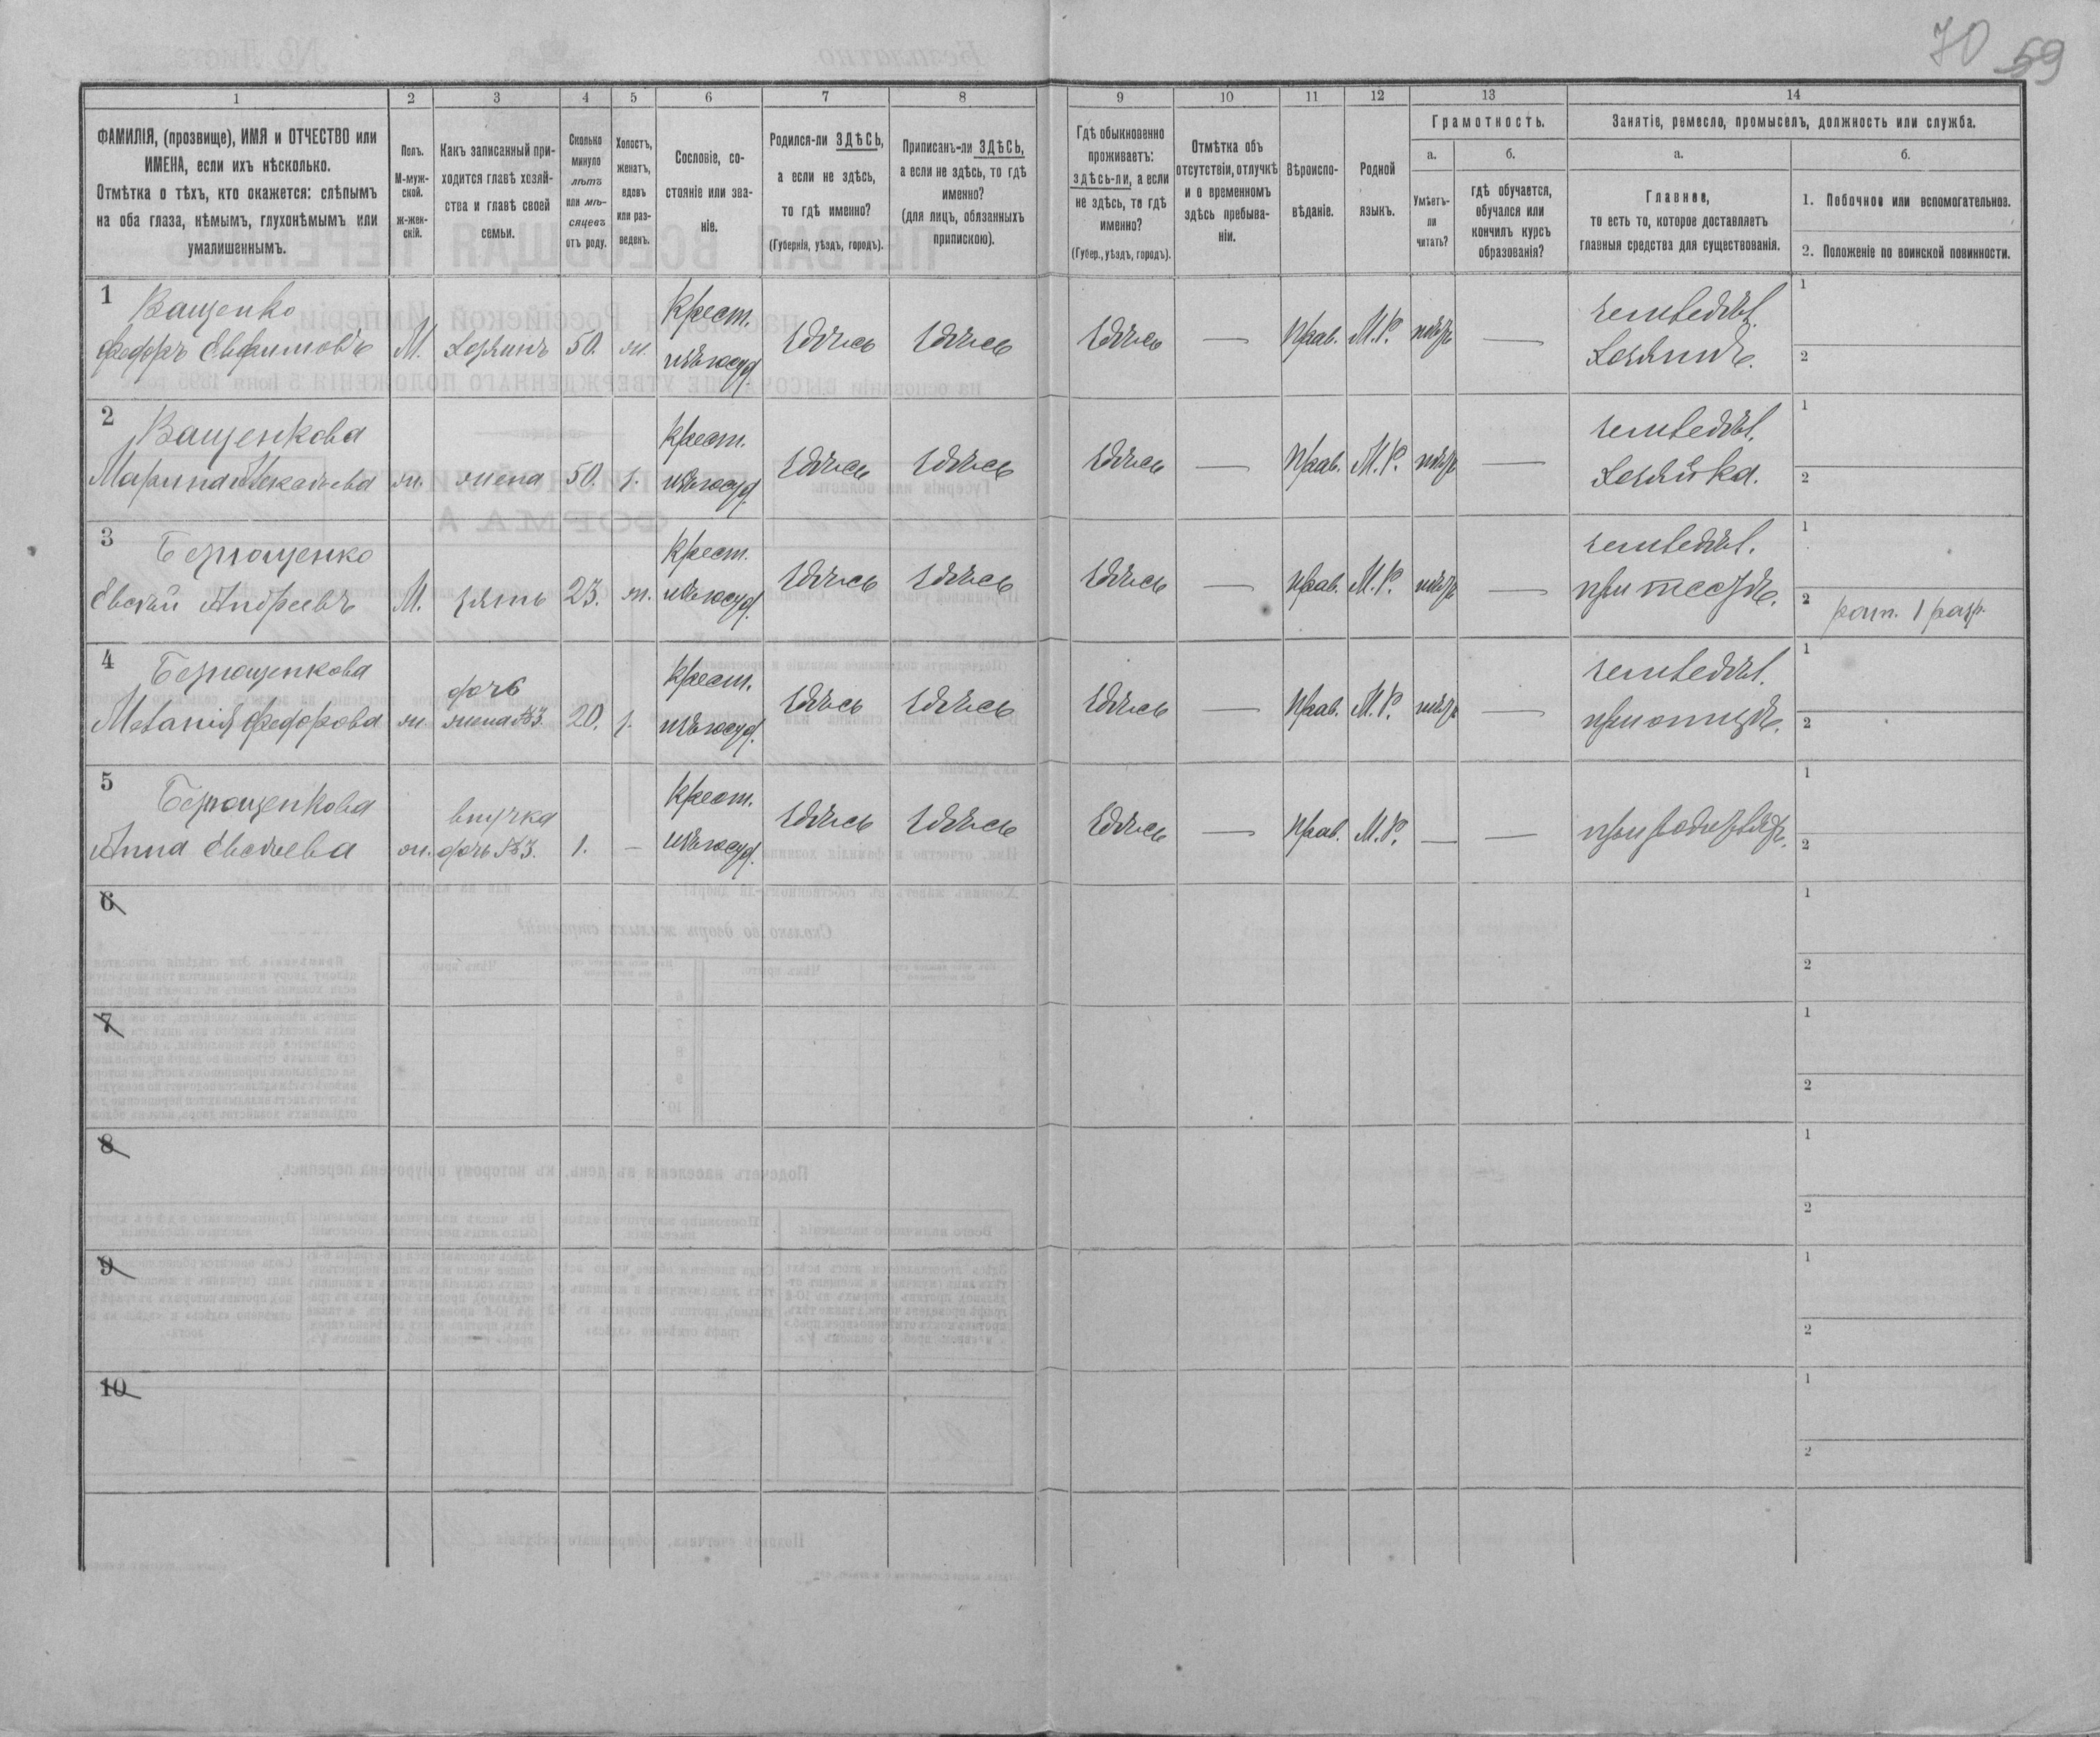 70 59
1 2 3 4 5 6 7 8 9 10 11 12 13 14
ФАМИЛІЯ, (прозвище), ИМЯ и ОТЧЕСТВО или
ИМЕНА, если ихъ нѣсколько.
Отмѣтка о тѣхъ, кто окажется: слѣпымъ
на оба глаза, нѣмымъ, глухонѣмымъ или
умалишеннымъ.
Полъ.
М-муж-
ской.
ж-жен-
скій.
Какъ записанный при-
ходится главѣ хозяй-
ства и главѣ своей
семьи.
Сколько
минуло
лѣтъ
или мѣ-
сяцевъ
отъ роду.
Холостъ,
женатъ,
вдовъ
или раз-
веденъ.
Сословіе, со-
стояніе или зва-
ніе.
Родился-ли ЗДѢСЬ,
а если не здѣсь,
то гдѣ именно?
(Губернія, уѣздъ, городъ).
Приписанъ-ли ЗДѢСЬ,
а если не здѣсь, то гдѣ
именно?
(для лицъ, обязанныхъ
припискою).
Гдѣ обыкновенно
проживаетъ:
здѣсь-ли, а если
не здѣсь, то гдѣ
именно?
(Губер., уѣздъ, городъ).
Отмѣтка объ
отсутствіи, отлучкѣ
и о временномъ
здѣсь пребыва-
ніи.
Вѣроиспо-
вѣданіе.
Родной
языкъ.
Грамотность.
а.
Умѣетъ-
ли
читать?
б.
гдѣ обучается,
обучался или
кончилъ курсъ
образованія?
Занятіе, ремесло, промыселъ, должность или служба.
а.
Главное,
то есть то, которое доставляетъ
главныя средства для существованія.
б.
1. Побочное или вспомогательное.
2. Положеніе по воинской повинности.
1 Ващенко крест. земледѣл. 1
Федоръ Евфимовъ М. Хозяинъ 50. ж. изъ госуд. здѣсь здѣсь здѣсь — Прав. М.Р. нѣтъ — Хозяинъ. 2
2 Ващенкова крест. земледѣл. 1
Марина ж. жена 50. з. изъ госуд. здѣсь здѣсь здѣсь — Прав. М.Р. нѣтъ — Хозяйка. 2
3 крест. земледѣл. 1
Андреевъ М. зять 23. ж. изъ госуд. здѣсь здѣсь здѣсь — Прав. М.Р. нѣтъ — при тестѣ. 2 рат. 1 разр.
4 дочь крест. земледѣл. 1
Меланія Федорова ж. жена №3. 20. з. изъ госуд. здѣсь здѣсь здѣсь — Прав. М.Р. нѣтъ — при отцѣ. 2
5 внучка крест. 1
Анна ж. дочь №3. 1. — изъ госуд. здѣсь здѣсь здѣсь — Прав. М.Р. — — при 2
6 1
2
7 1
2
8 1
2
9 1
2
10 1
2